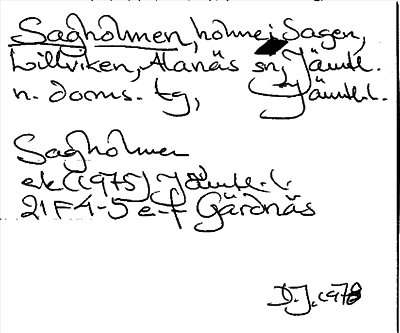 Sagholmen, holme i Sagen,
Lillviken, Alanäs sn, Jämtl.
n. doms. tg, Jämtl.l.
Sagholmen
ek (1975) Jämtl. l.
21F4-5 e-f Gärdnäs
D.J. 1978